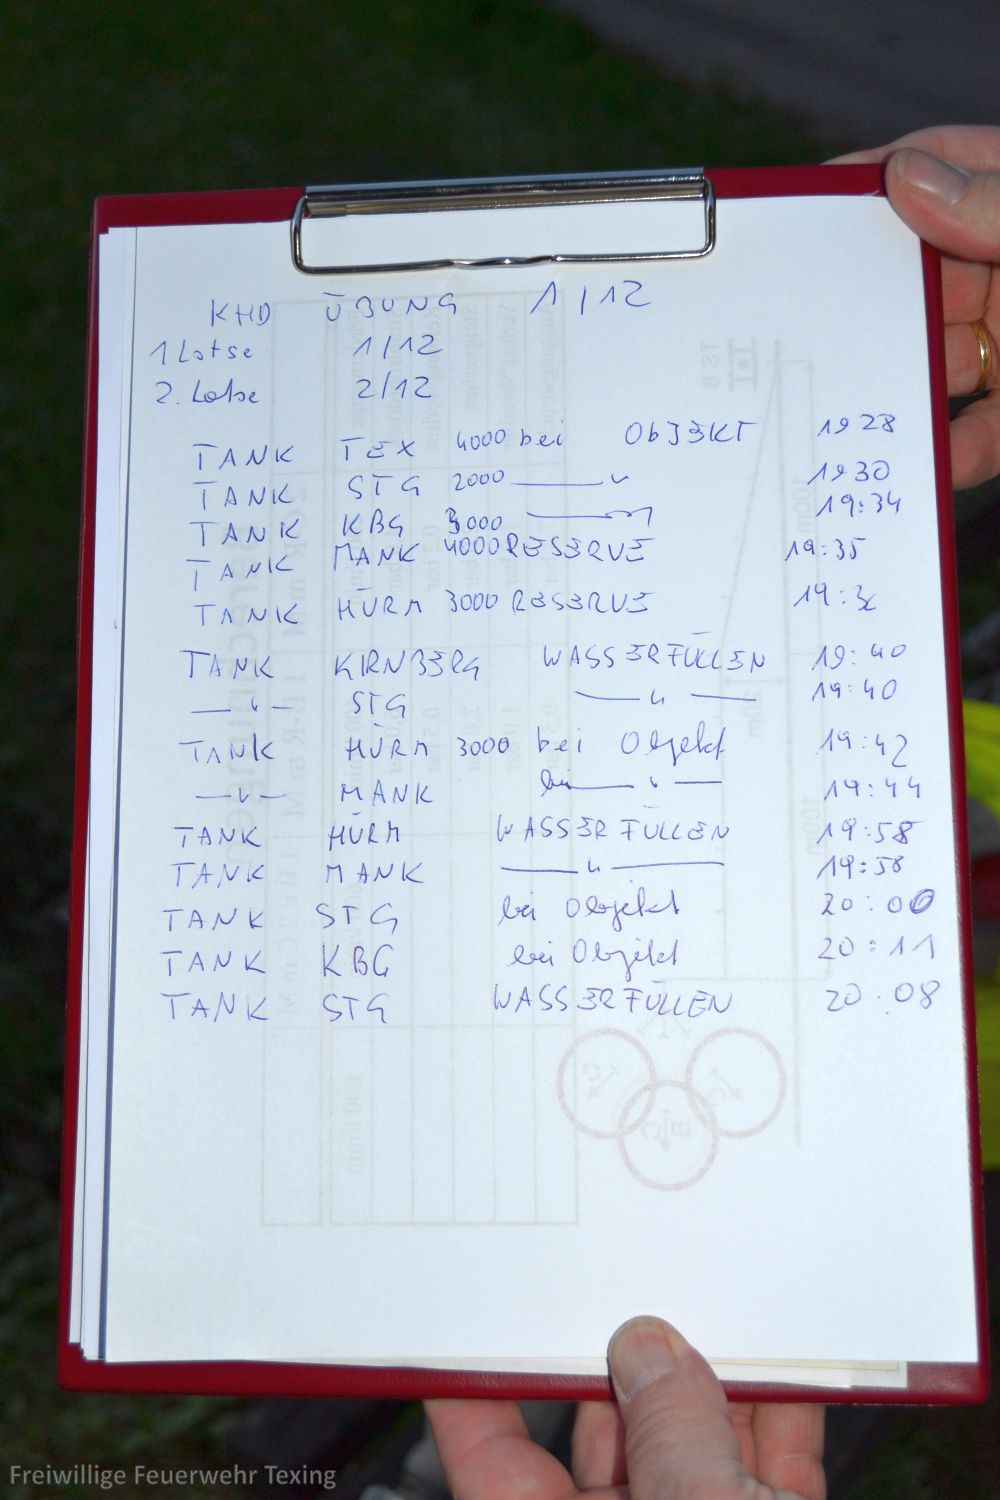 KHD ÜBUNG 1/12
1 Lotse 1/12
2. Lotse 2/12
TANK TEX 4000 bei ObJEKT 19 28
TANK STG 2000 —〃 19 30
TANK KBG 3000 —〃 19:34
TANK MANK 4000 RESERVE 19:35
TANK HÜRM 3000 RESERVE
TANK KIRNBERG WASSERFÜLLEN 19:40
—〃— STG —〃— 19:40
TANK HÜRM 3000 bei Objekt 19:42
—〃— MANK bei —〃— 19:44
TANK HÜRM WASSERFÜLLEN 19:58
TANK MANK —〃— 19:58
TANK STG bei Objekt 20:00
TANK KBG bei Objekt 20:11
TANK STG WASSERFÜLLEN 20.08
Freiwillige Feuerwehr Texing